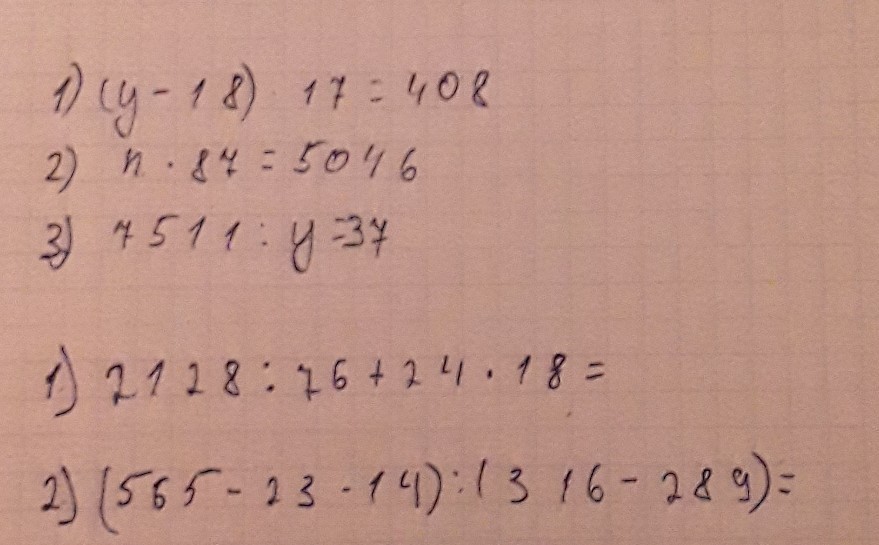 1) (y - 18) · 17 = 408
2) n · 87 = 5046
3) 7511 : y = 37
1) 2128 : 76 + 24 · 18 =
2) (565 - 23 · 14) : (316 - 289) =